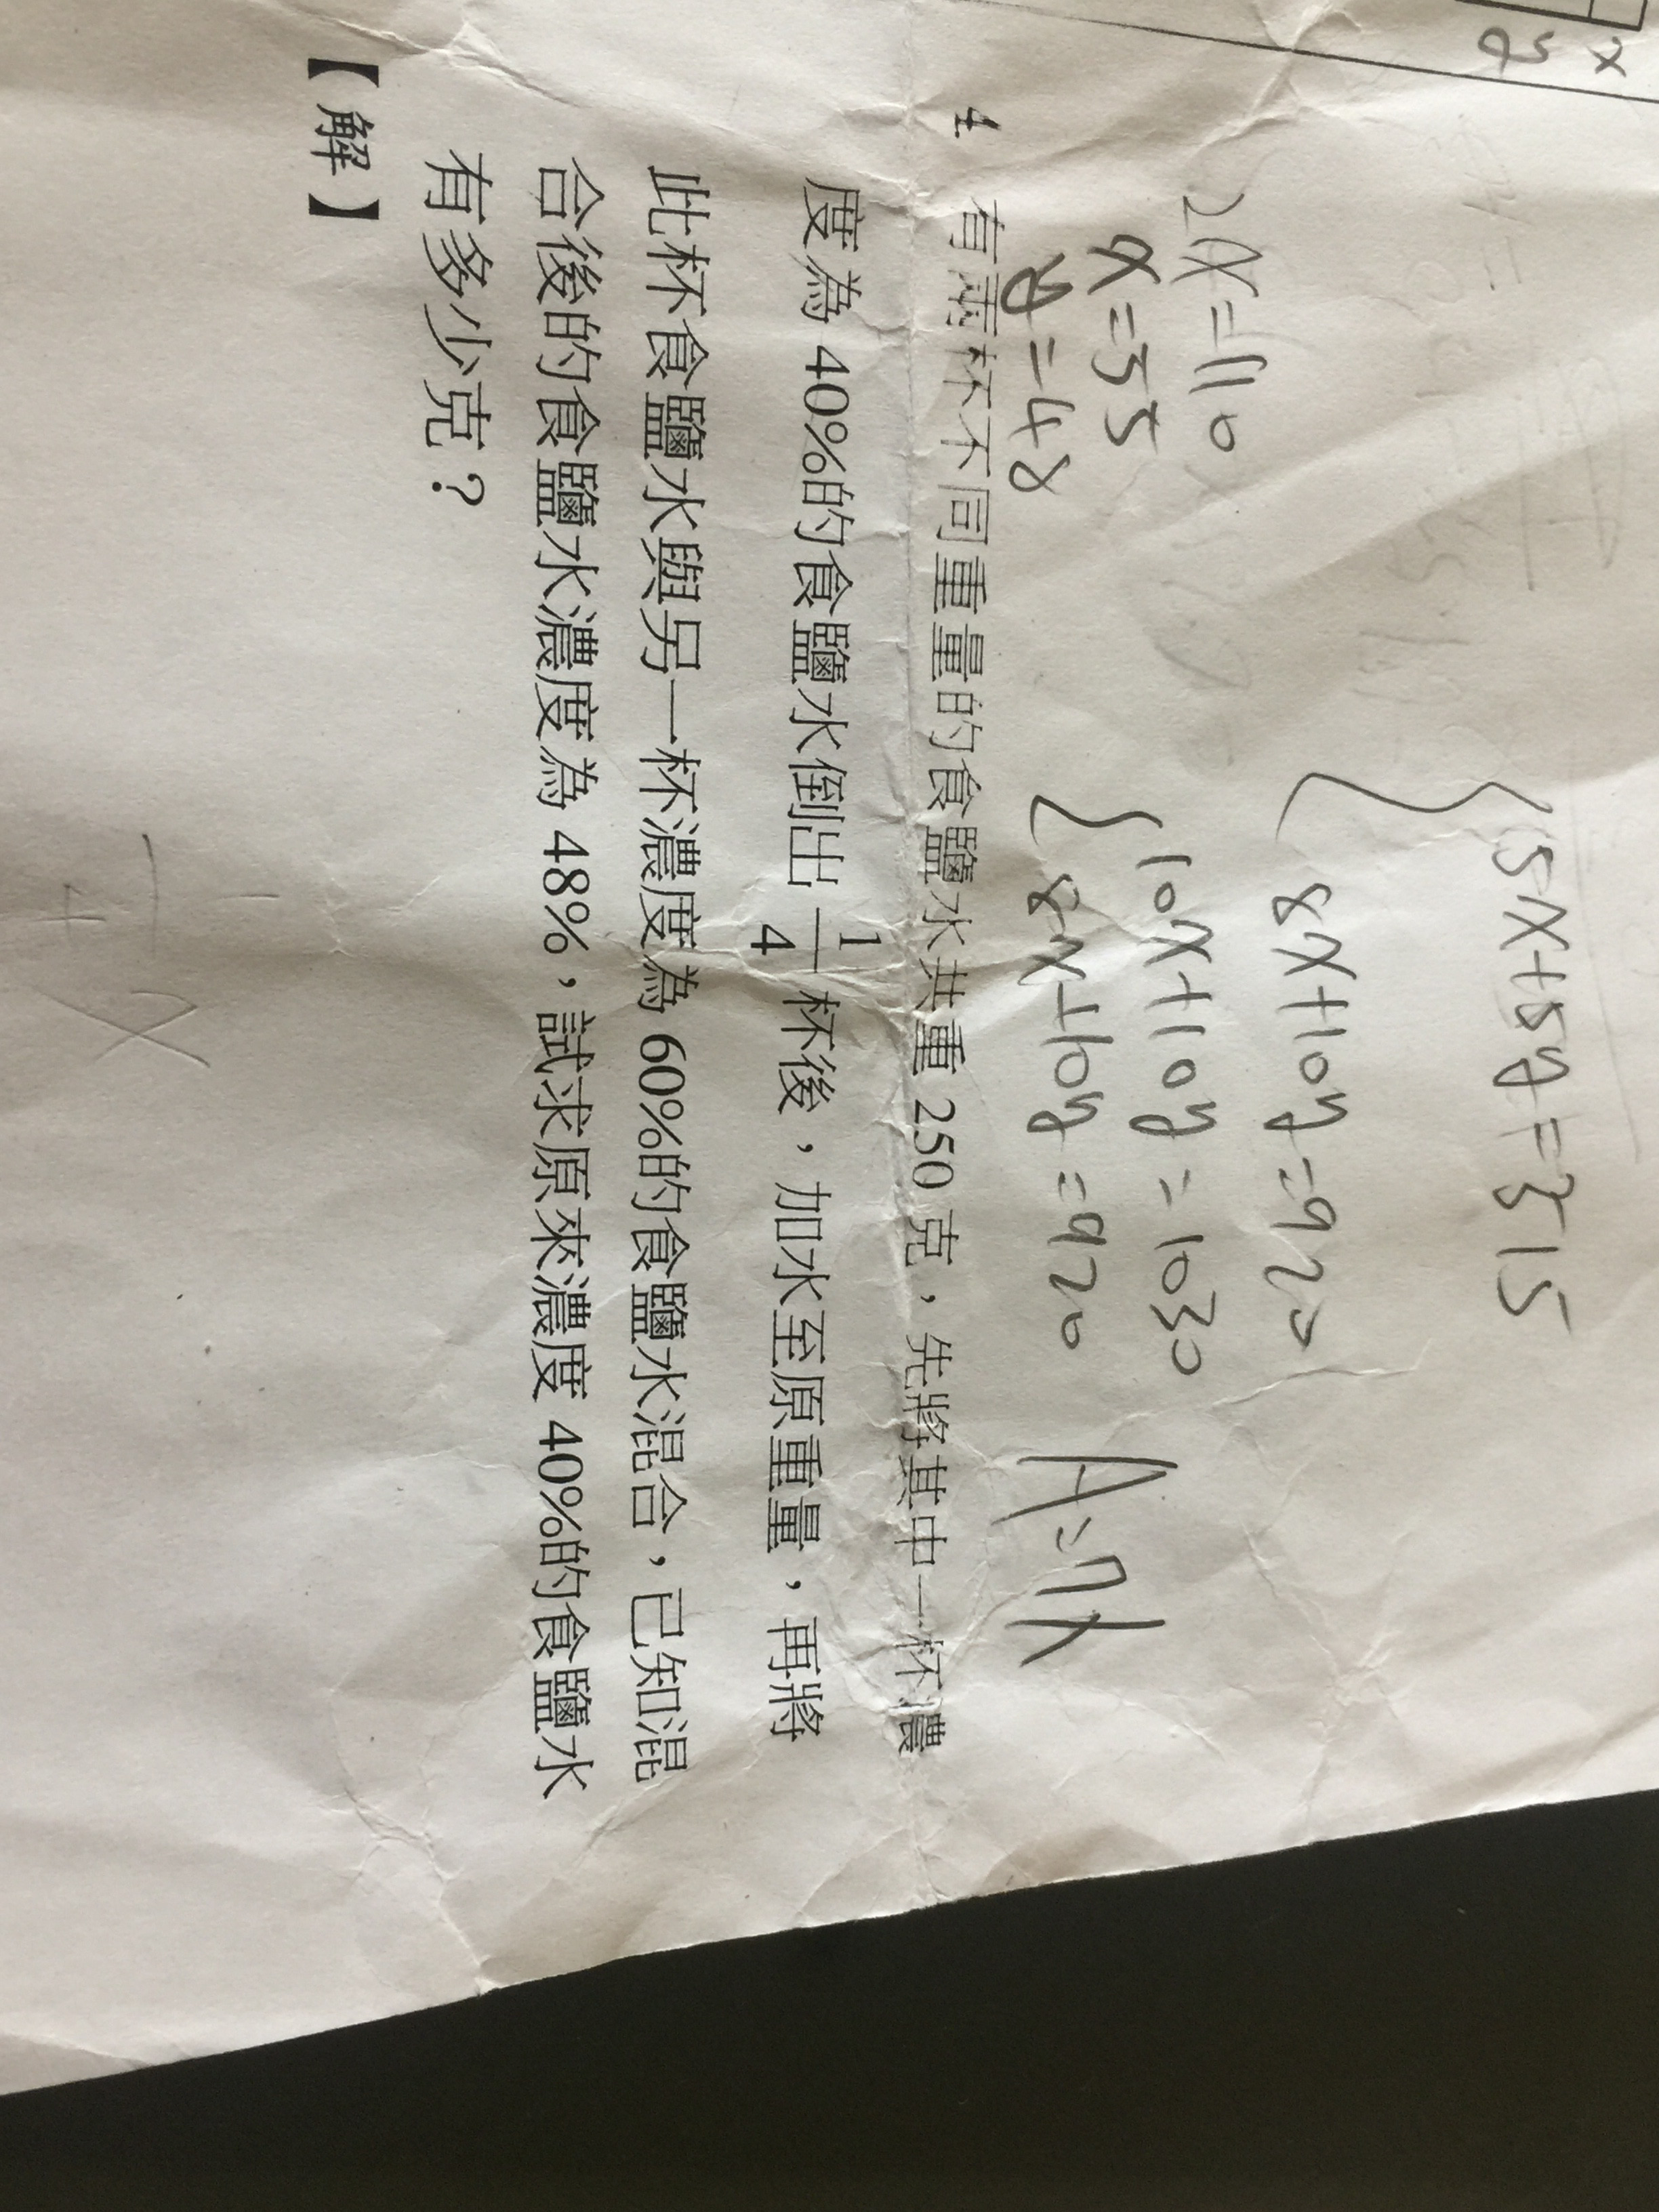 x
y
5x+5y=515
8x+10y=920
10x+10y=1030
8x+10y=920
2x=110
x=55
y=48
A=
4. 有兩杯不同重量的食鹽水共重 250 克，先將其中一杯濃
度為 40%的食鹽水倒出 1/4 杯後，加水至原重量，再將
此杯食鹽水與另一杯濃度為 60%的食鹽水混合，已知混
合後的食鹽水濃度為 48%，試求原來濃度 40%的食鹽水
有多少克？
【解】